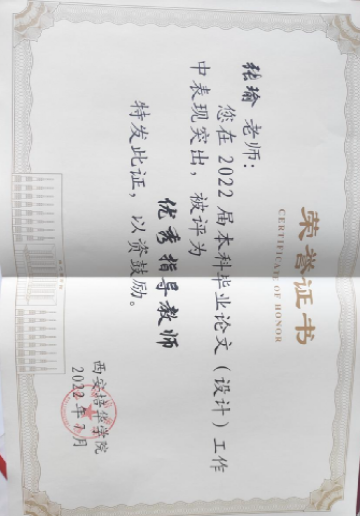 荣誉证书
CERTIFICATE OF HONOR
张瑜 老师：
您在 2022 届本科毕业论文（设计）工作
中表现突出，被评为
优秀指导教师
特发此证，以资鼓励。
西安培华学院
2022 年 7 月